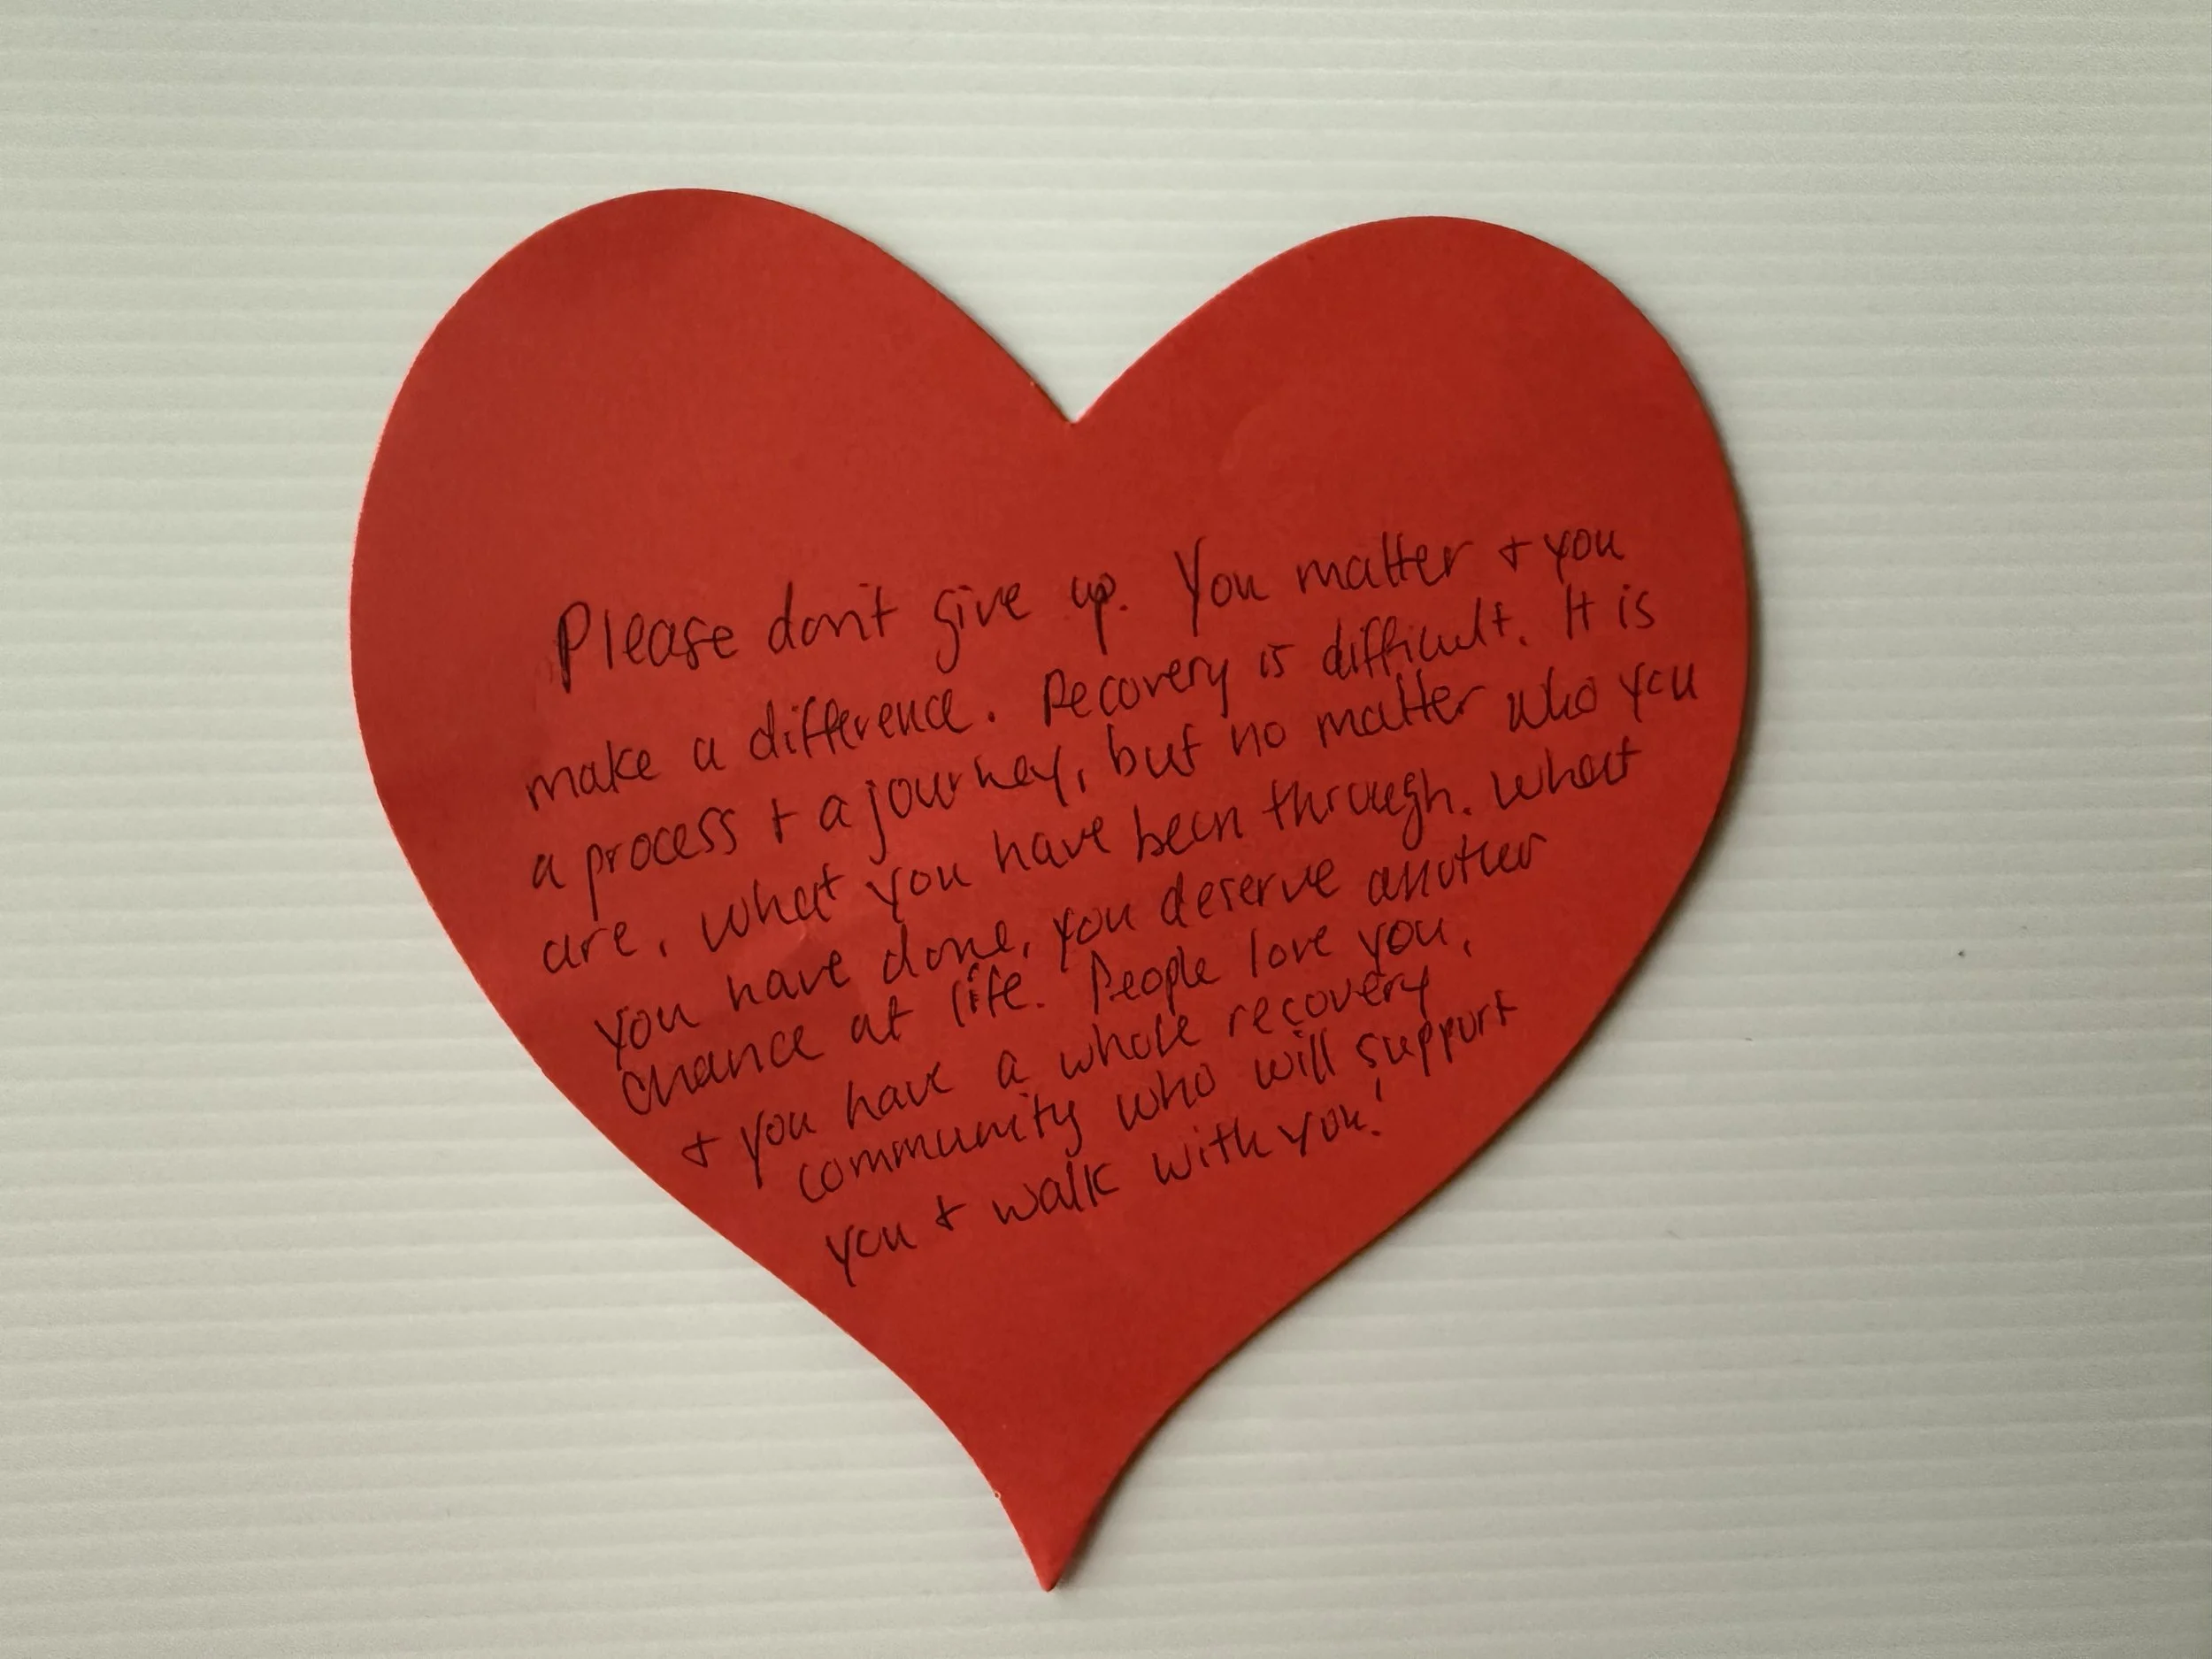 Please don't give up. You matter + you
make a difference. Recovery is difficult. It is
a process + a journey, but no matter who you
are, what you have been through, what
you have done, you deserve another
chance at life. People love you,
+ you have a whole recovery
community who will support
you + walk with you!